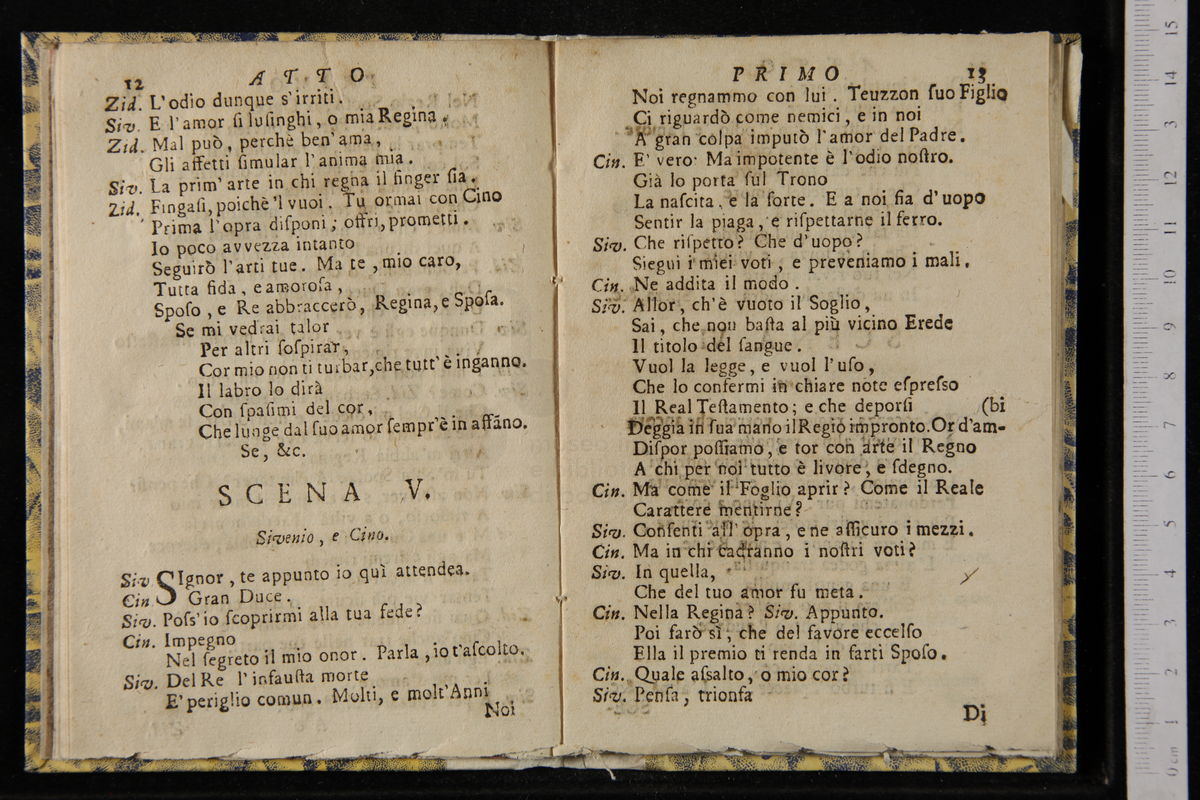 12 ATTO
Zid. L'odio dunque s'irriti.
Siv. E l'amor ſi luſinghi, o mia Regina.
Zid. Mal può, perchè ben'ama,
Gli affetti ſimular l'anima mia.
Siv. La prim'arte in chi regna il finger ſia.
Zid. Fingaſi, poichè'l vuoi. Tu ormai con Cino
Prima l'opra diſponi; offri, prometti.
Io poco avvezza intanto
Seguirò l'arti tue. Ma te, mio caro,
Tutta fida, e amoroſa,
Spoſo, e Re abbraccerò, Regina, e Spoſa.
Se mi vedrai talor
Per altri ſoſpirar,
Cor mio non ti turbar, che tutt'è inganno.
Il labro lo dirà
Con ſpaſimi del cor,
Che lunge dal ſuo amor ſempr'è in affãno.
Se, &c.
SCENA V.
Sivenio, e Cino.
Siv SIgnor, te appunto io quì attendea.
Cin Gran Duce.
Siv. Poſs'io ſcoprirmi alla tua fede?
Cin. Impegno
Nel ſegreto il mio onor. Parla, io t'aſcolto.
Siv. Del Re l'infauſta morte
E' periglio comun. Molti, e molt'Anni
Noi
PRIMO 13
Noi regnammo con lui. Teuzzon ſuo Figlio
Ci riguardò come nemici, e in noi
A gran colpa imputò l'amor del Padre.
Cin. E' vero. Ma impotente è l'odio noſtro.
Già lo porta ſul Trono
La naſcita, e la ſorte. E a noi fia d'uopo
Sentir la piaga, e riſpettarne il ferro.
Siv. Che riſpetto? Che d'uopo?
Siegui i miei voti, e preveniamo i mali.
Cin. Ne addita il modo.
Siv. Allor, ch'è vuoto il Soglio,
Sai, che non baſta al più vicino Erede
Il titolo del ſangue.
Vuol la legge, e vuol l'uſo,
Che lo confermi in chiare note eſpreſso
Il Real Teſtamento; e che deporſi (bi
Deggia in ſua mano il Regio impronto. Or d'am-
Diſpor poſſiamo, e tor con arte il Regno
A chi per noi tutto è livore, e ſdegno.
Cin. Ma come il Foglio aprir? Come il Reale
Carattere mentirne?
Siv. Conſenti all'opra, e ne aſſicuro i mezzi.
Cin. Ma in chi cadranno i noſtri voti?
Siv. In quella,
Che del tuo amor fu meta.
Cin. Nella Regina? Siv. Appunto.
Poi farò sì, che del favore eccelſo
Ella il premio ti renda in farti Spoſo.
Cin. Quale aſsalto, o mio cor?
Siv. Penſa, trionfa
Di
15
14
13
12
11
10
9
8
7
6
5
4
3
2
1
0 cm